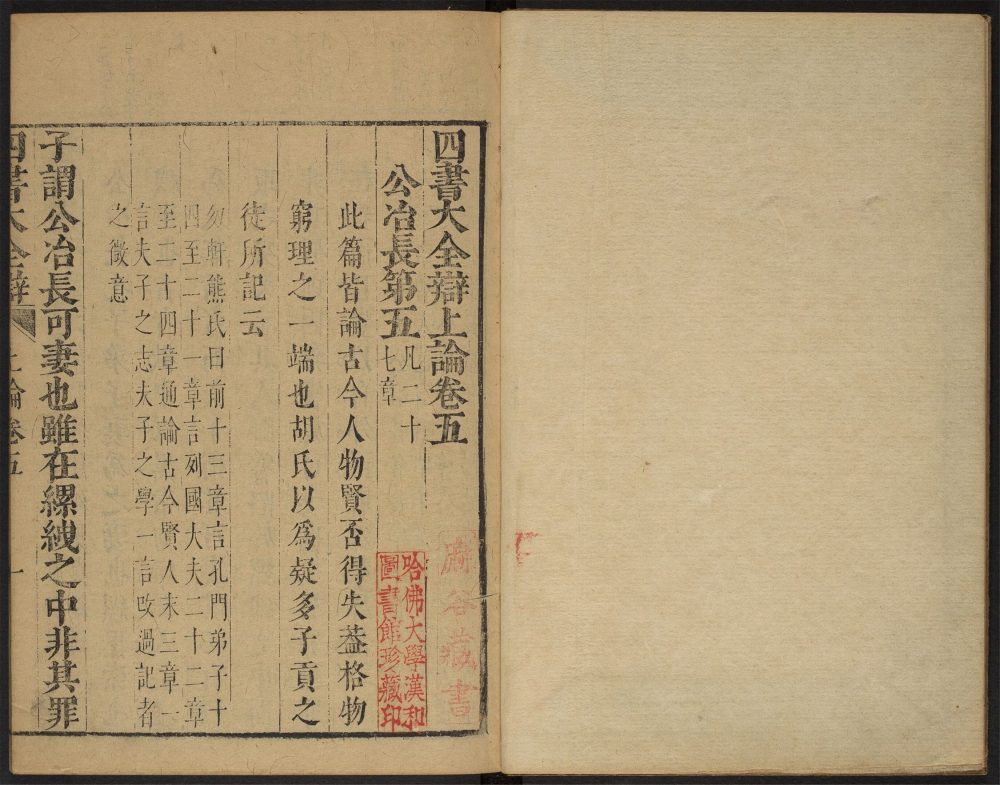 四書大全辯上論卷五
公冶長第五凡二十
七章
此篇皆論古今人物賢否得失葢格物
窮理之一端也胡氏以爲疑多子貢之
徒所記云
勿軒熊氏曰前十三章言孔門弟子十
四至二十一章言列國大夫二十二章
至二十四章通論古今賢人末三章一
言夫子之志夫子之學一言改過記者
之微意
子謂公冶長可妻也雖在縲絏之中非其罪
四書大全辯 上論卷五 一
谷藏書
哈佛大學漢和
圖書館珍藏印